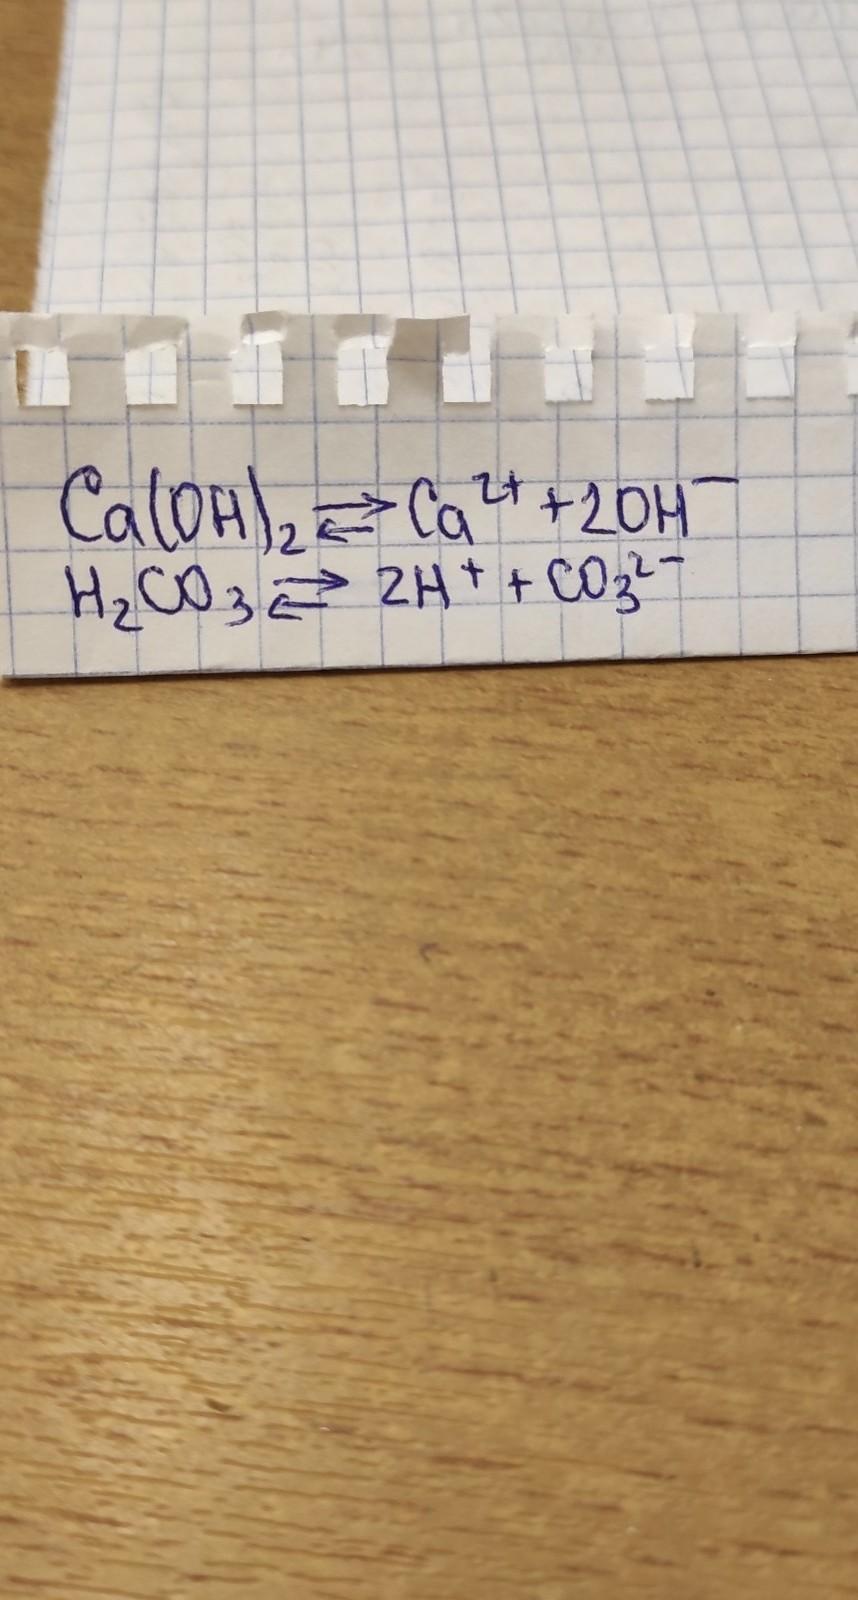 Ca(OH)₂ ⇄ Ca²⁺ + 2OH⁻
H₂CO₃ ⇄ 2H⁺ + CO₃²⁻